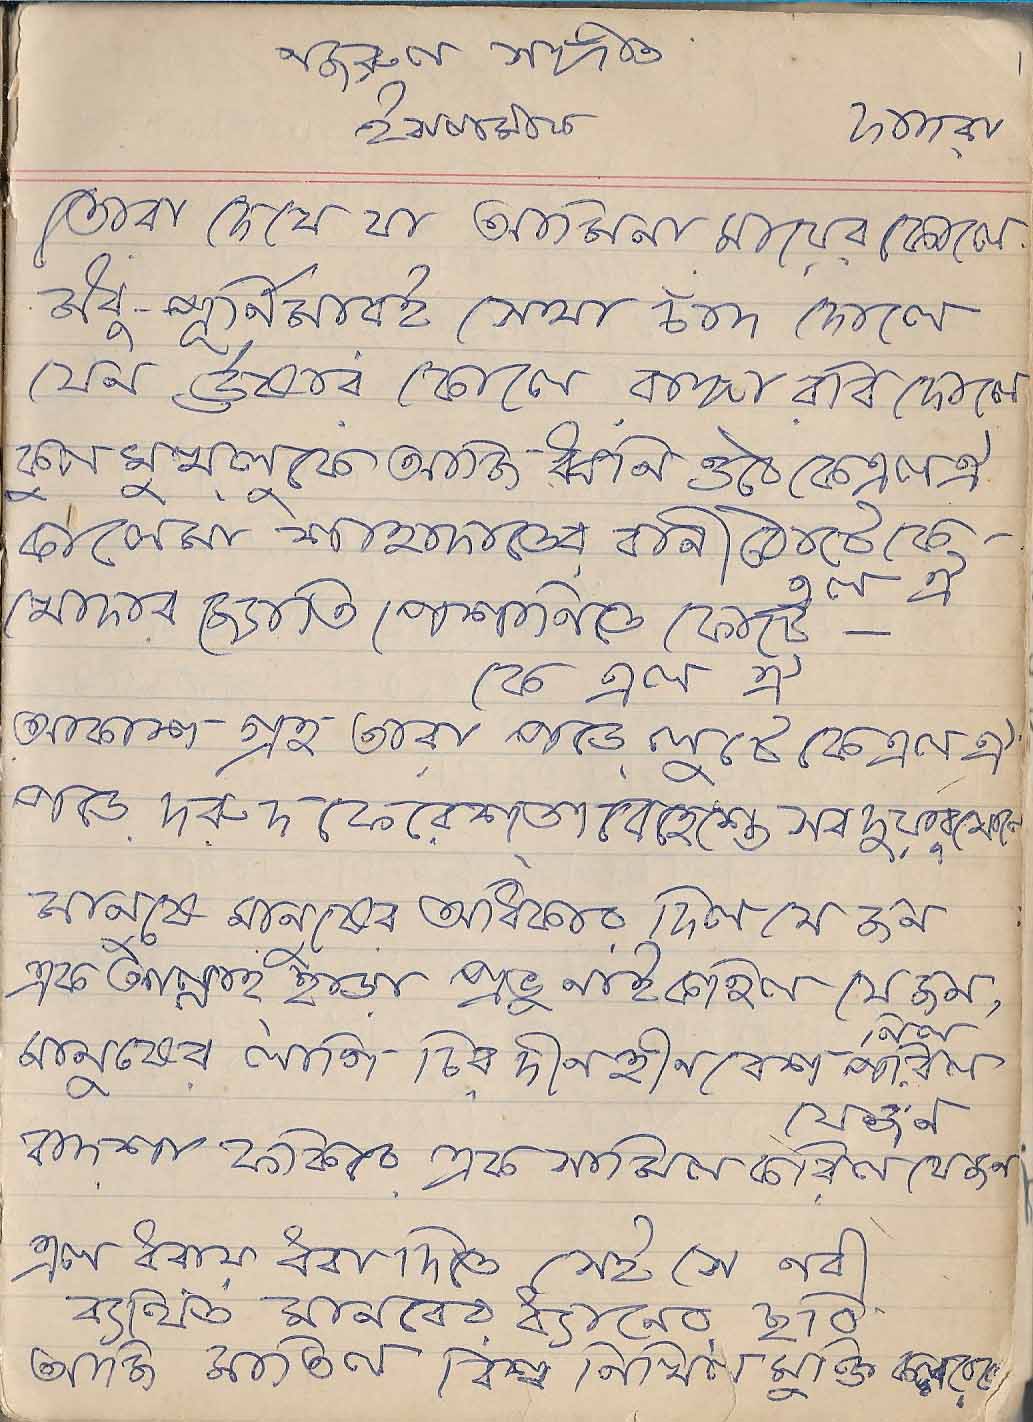 নজরুল সঙ্গীত
১
ইসলামীক
দাদরা
তোরা দেখে যা আমিনা মায়ের কোলে
মধু-পূর্ণিমারই সেথা চাঁদ দোলে
যেন ঊষার কোলে রাঙ্গা রবি দোলে
কুল মখলুকে আজি ধ্বনি ওঠে কে এল ঐ
কালেমা শাহাদাতের বানী ঠোটে কে -
এল ঐ
খোদার জ্যোতি পেশানিতে ফোটে —
কে এল ঐ
আকাশ গ্রহ তারা পড়ে লুটে কে এল ঐ
পড়ে দরুদ ফেরেশতা বেহেশ্তে সব দুয়ার খোলে
মানুষে মানুষের অধিকার দিল যে জন
এক আল্লাহ ছাড়া প্রভু নাই কহিল যে জন,
মানুষের লাগি চির দীনহীন বেশ ধরিল
নিল
যেজন
বাদশা ফকিরে এক সামিল করিল যেজন
এল ধরায় ধরা দিতে সেই সে নবী
ব্যথিত মানবের ধ্যানের ছবি
আজি মাতিল বিশ্ব নিখিল মুক্তি কলরোলে